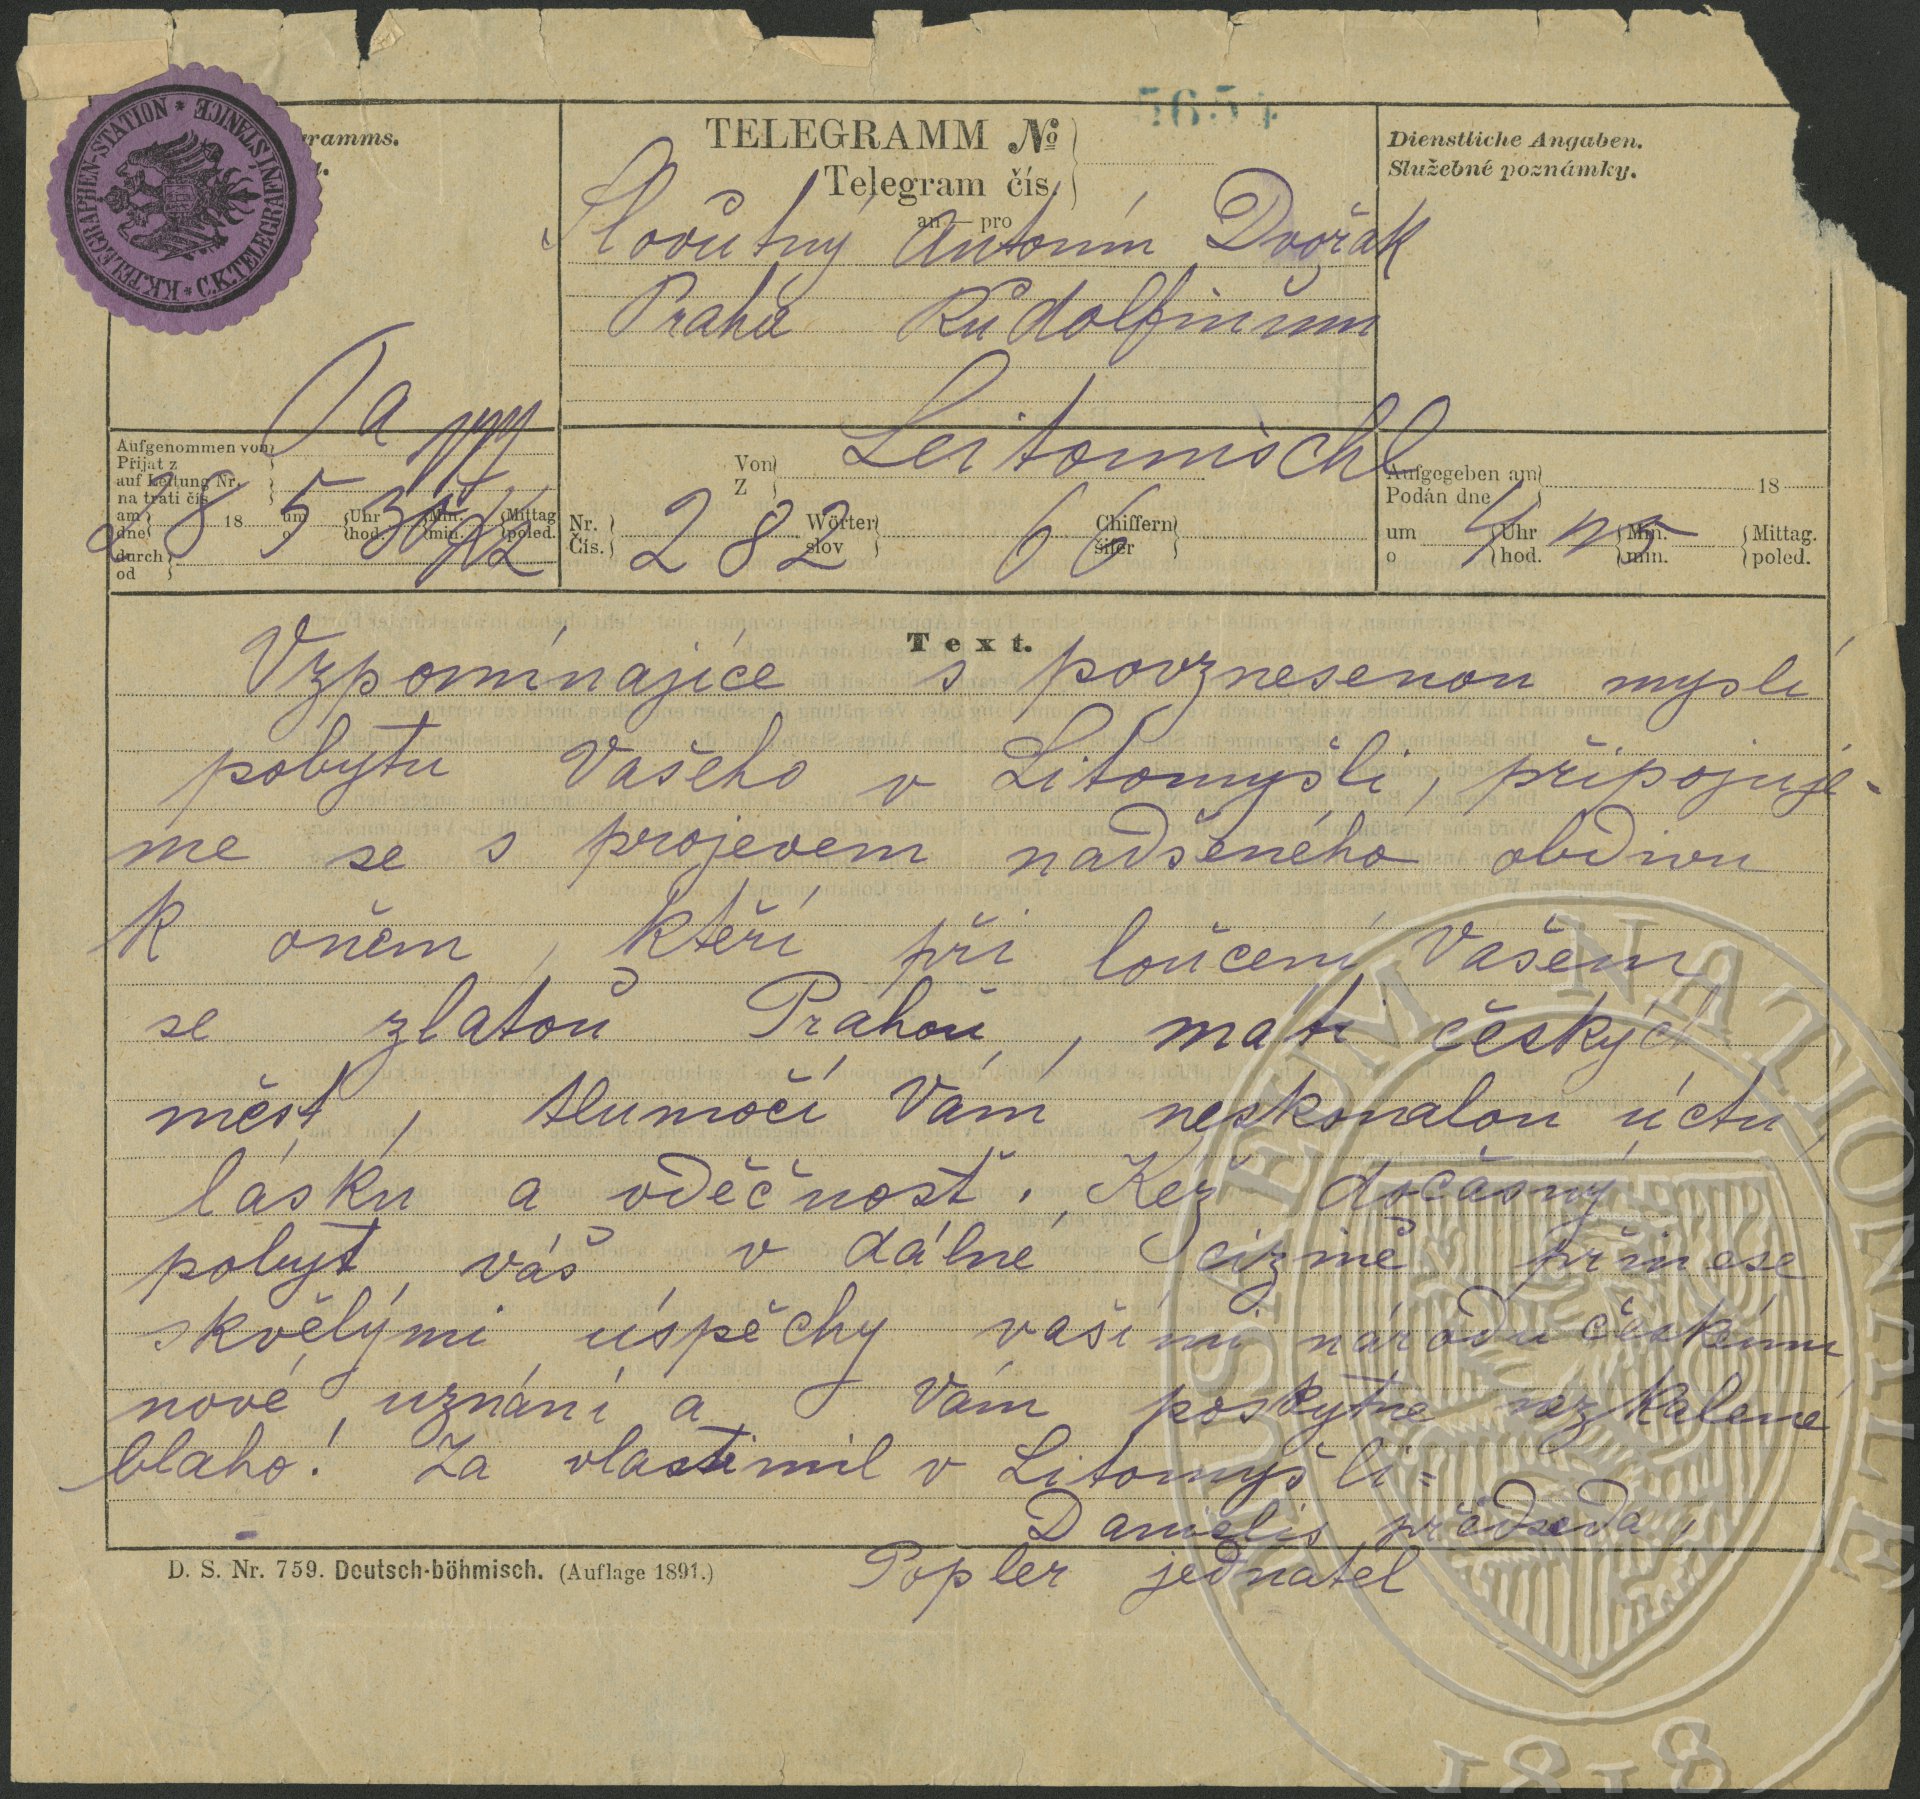 K.K.TELEGRAPHEN-STATION * C.K.TELEGRAFNÍ STANICE *
gramms.
TELEGRAMM No
Telegram čís.
an — pro
5654
Dienstliche Angaben.
Služebné poznámky.
Slovutný Antonín Dvořák
Praha Rudolfinum
Aufgenommen von
Přijat z
auf Leitung Nr.
na trati čís.
am
dne
28 18
um
o
5 Uhr
hod.
30 Min.
min.
Mittag
poled.
durch
od
Von
Z
Leitomischl
Nr.
Čís.
282
Wörter
slov
66
Chiffern
šifer
Aufgegeben am
Podán dne
18
um
o
4 Uhr
hod.
Min.
min.
Mittag.
poled.
Text.
Vzpomínajíce s povznesenou myslí
pobytu Vašeho v Litomyšli, připojuje-
me se s projevem nadšeného obdivu
k oněm, kteří při loučení Vašem
se zlatou Prahou, máti českých
měst, tlumočí Vám neskonalou úctu,
lásku a vděčnosť. Kéž dočasný
pobyt váš v dálné cizině přinese
skvělými úspěchy vašimi národu českému
nové uznání a Vám poskytne nezkalené
blaho! Za vlastimil v Litomyšli =
Danielis předseda,
Popler jednatel
D. S. Nr. 759. Deutsch-böhmisch. (Auflage 1891.)
MUSAEUM NATIONALE
1818